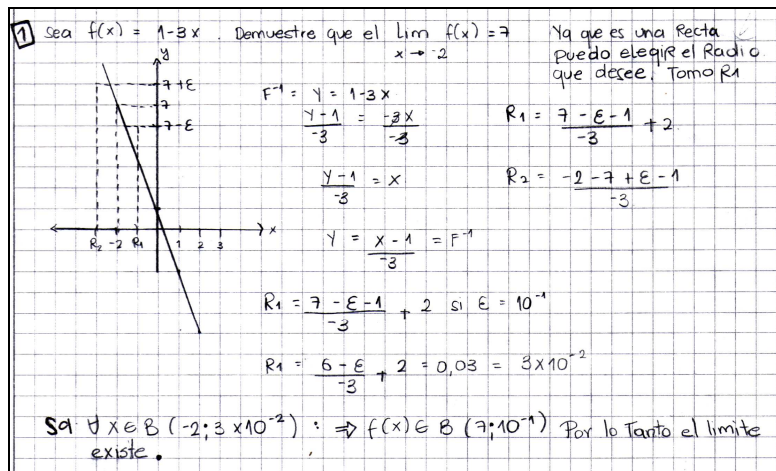 1 Sea f(x) = 1-3x . Demuestre que el Lim f(x) = 7
x → -2
Ya que es una Recta
puedo elegiR el Radio
que desee. Tomo R1
y
7+ε
7
7-ε
x
R2 -2 R1 1 2 3
F⁻¹ = y = 1-3x
y-1/-3 = -3x/-3
y-1/-3 = x
y = x-1/-3 = F⁻¹
R1 = 7-ε-1/-3 + 2
R2 = -2-7+ε-1/-3
R1 = 7-ε-1/-3 + 2 si ε = 10⁻¹
R1 = 6-ε/-3 + 2 = 0,03 = 3x10⁻²
Sol ∀ x ∈ B (-2; 3x10⁻²) : ⇒ f(x) ∈ B (7; 10⁻¹) Por lo Tanto el limite
existe.